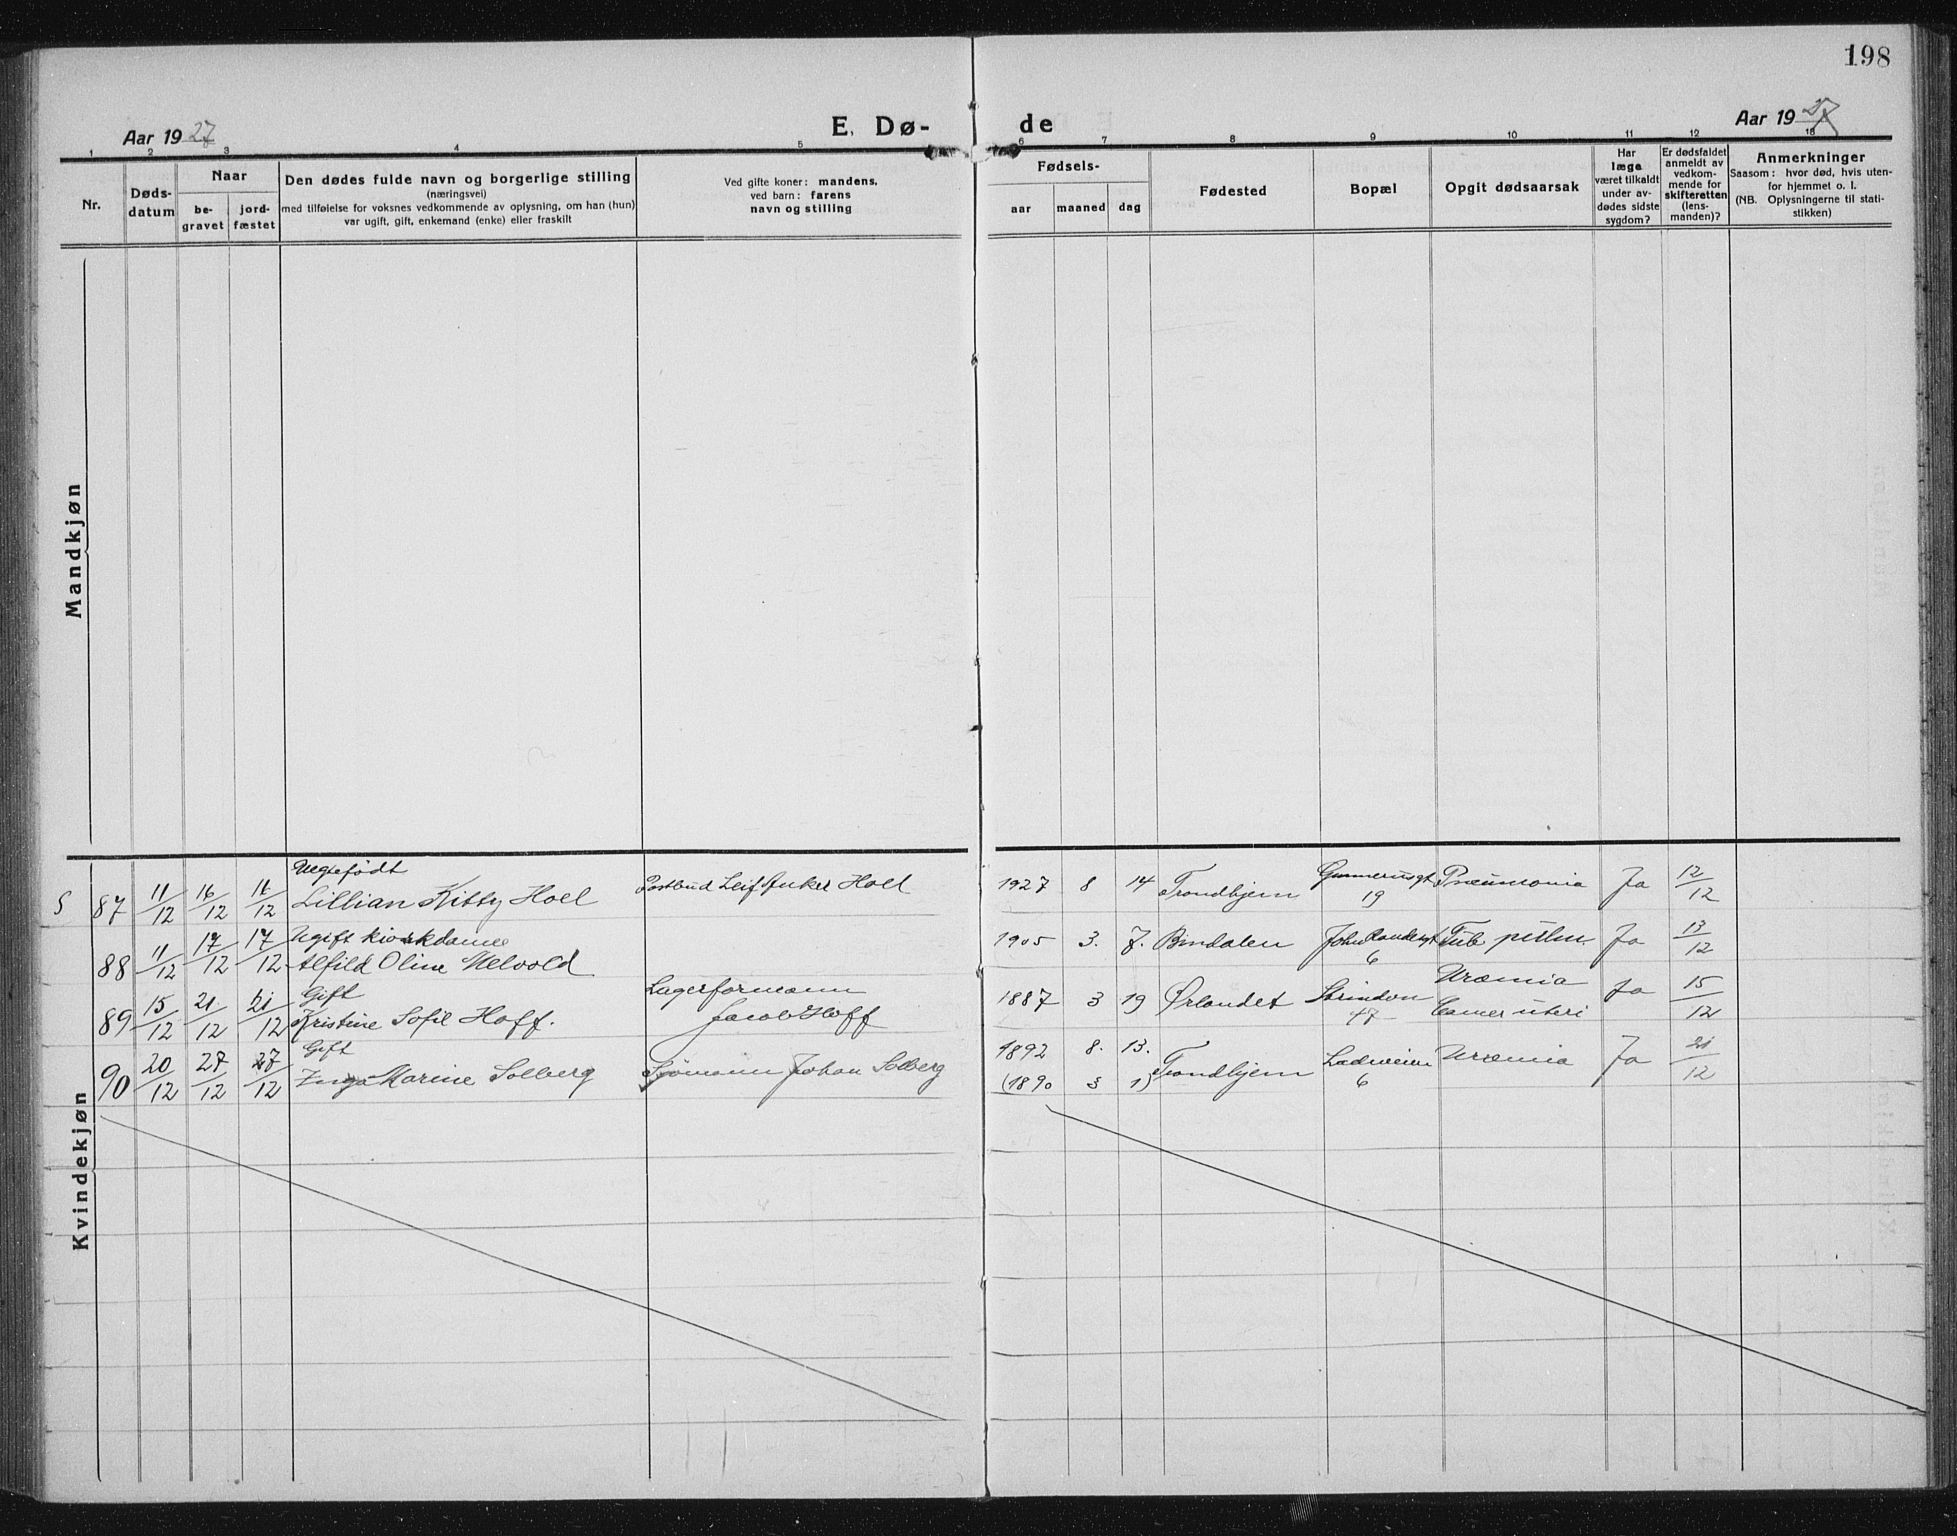 198
Aar 1927
E. Dø-
de
Aar 1927
1 2 3 4 5 6 7 8 9 10 11 12 13
Nr.
Døds-
datum
Naar
be-
gravet
jord-
fæstet
Den dødes fulde navn og borgerlige stilling
(næringsvei)
med tilføielse for voksnes vedkommende av oplysning, om han (hun)
var ugift, gift, enkemand (enke) eller fraskilt
Ved gifte koner: mandens,
ved barn: farens
navn og stilling
Fødsels-
aar maaned dag
Fødested
Bopæl
Opgit dødsaarsak
Har
læge
været tilkaldt
under av-
dødes sidste
sygdom?
Er dødsfaldet
anmeldt av
vedkom-
mende for
skifteretten
(lens-
manden)?
Anmerkninger
Saasom: hvor død, hvis uten-
for hjemmet o. l.
(NB. Oplysningerne til stati-
stikken)
Mandkjøn
Kvindekjøn
Uegtefødt
S 87 11/12 16/12 11/12 Lillian Kitty Hoel Postbud Leif Anker Hoel 1927 8 14 Trondhjem Gunnerusgt Pneumonia Ja 12/12
19
Ugift kioskdame
88 11/12 17/12 17/12 Alfild Oline Melvold 1905 3. 7. Bindalen Tub Ja 13/12
6
Gift Lagerformann Uræmia
89 15/12 21/12 21/12 Kristine Sofie Hoff. Jacob Hoff 1887 3 19 Ørlandet Strinden Cancer uteri Ja 15/12
47
Gift
90 20/12 27/12 27/12 Inga Marine Solberg Sjømann Johan Solberg 1892 8. 13. Trondhjem Ladeveien Uræmia Ja 21/12
(1890 3 1) 6